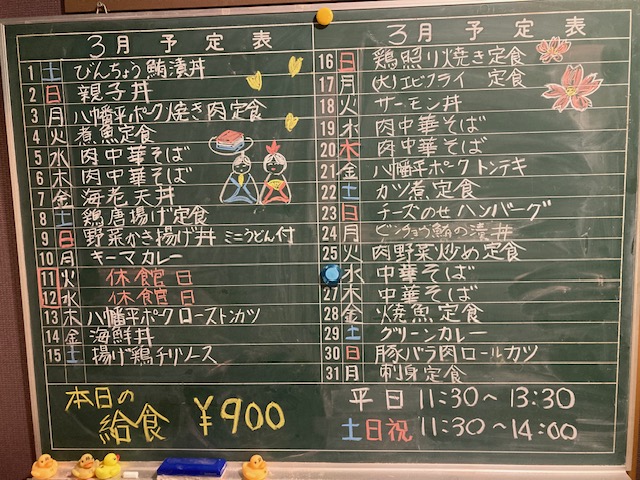 3月予定表
1 土 びんちょう鮪漬丼
2 日 親子丼
3 月 八幡平ポーク焼き肉定食
4 火 煮魚定食
5 水 肉中華そば
6 木 肉中華そば
7 金 海老天丼
8 土 鶏唐揚げ定食
9 日 野菜かき揚げ丼 ミニうどん付
10 月 キーマカレー
11 火 休館日
12 水 休館日
13 木 八幡平ポークローストンカツ
14 金 海鮮丼
15 土 揚げ鶏チリソース
本日の
給食 ¥900
3月予定表
16 日 鶏照り焼き定食
17 月 (大)エビフライ 定食
18 火 サーモン丼
19 水 肉中華そば
20 木 肉中華そば
21 金 八幡平ポークトンテキ
22 土 カツ煮定食
23 日 チーズのせハンバーグ
24 月 ビンチョウ鮪の漬丼
25 火 肉野菜炒め定食
水 中華そば
27 木 中華そば
28 金 焼魚定食
29 土 グリーンカレー
30 日 豚バラ肉ロールカツ
31 月 刺身定食
平日 11:30~13:30
土日祝 11:30~14:00